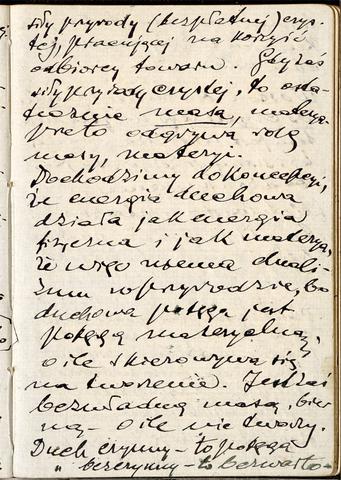 siły przyrody (bezpłatnej) czys-
tej, pracującej na korzyść
odbiorcy towaru. Gdyż zaś
siły przyrody czystej, to osta-
tecznie masa, materya
preto odgrywa rolę
masy, materyi.
Dochodzimy do koncepcyi,
że energia duchowa
działa jak energia
fizyczna i jak materya,
że więc niema duali-
zmu w przyrodzie, bo
duchowa potęga jest
potęgą materyalną,
o ile skierowywa się
na tworzenie. Jest zaś
bezwładną masą, bier
ną – o ile nie tworzy.
Duch czynny – to potęga
" bezczynny – to bezwarto-